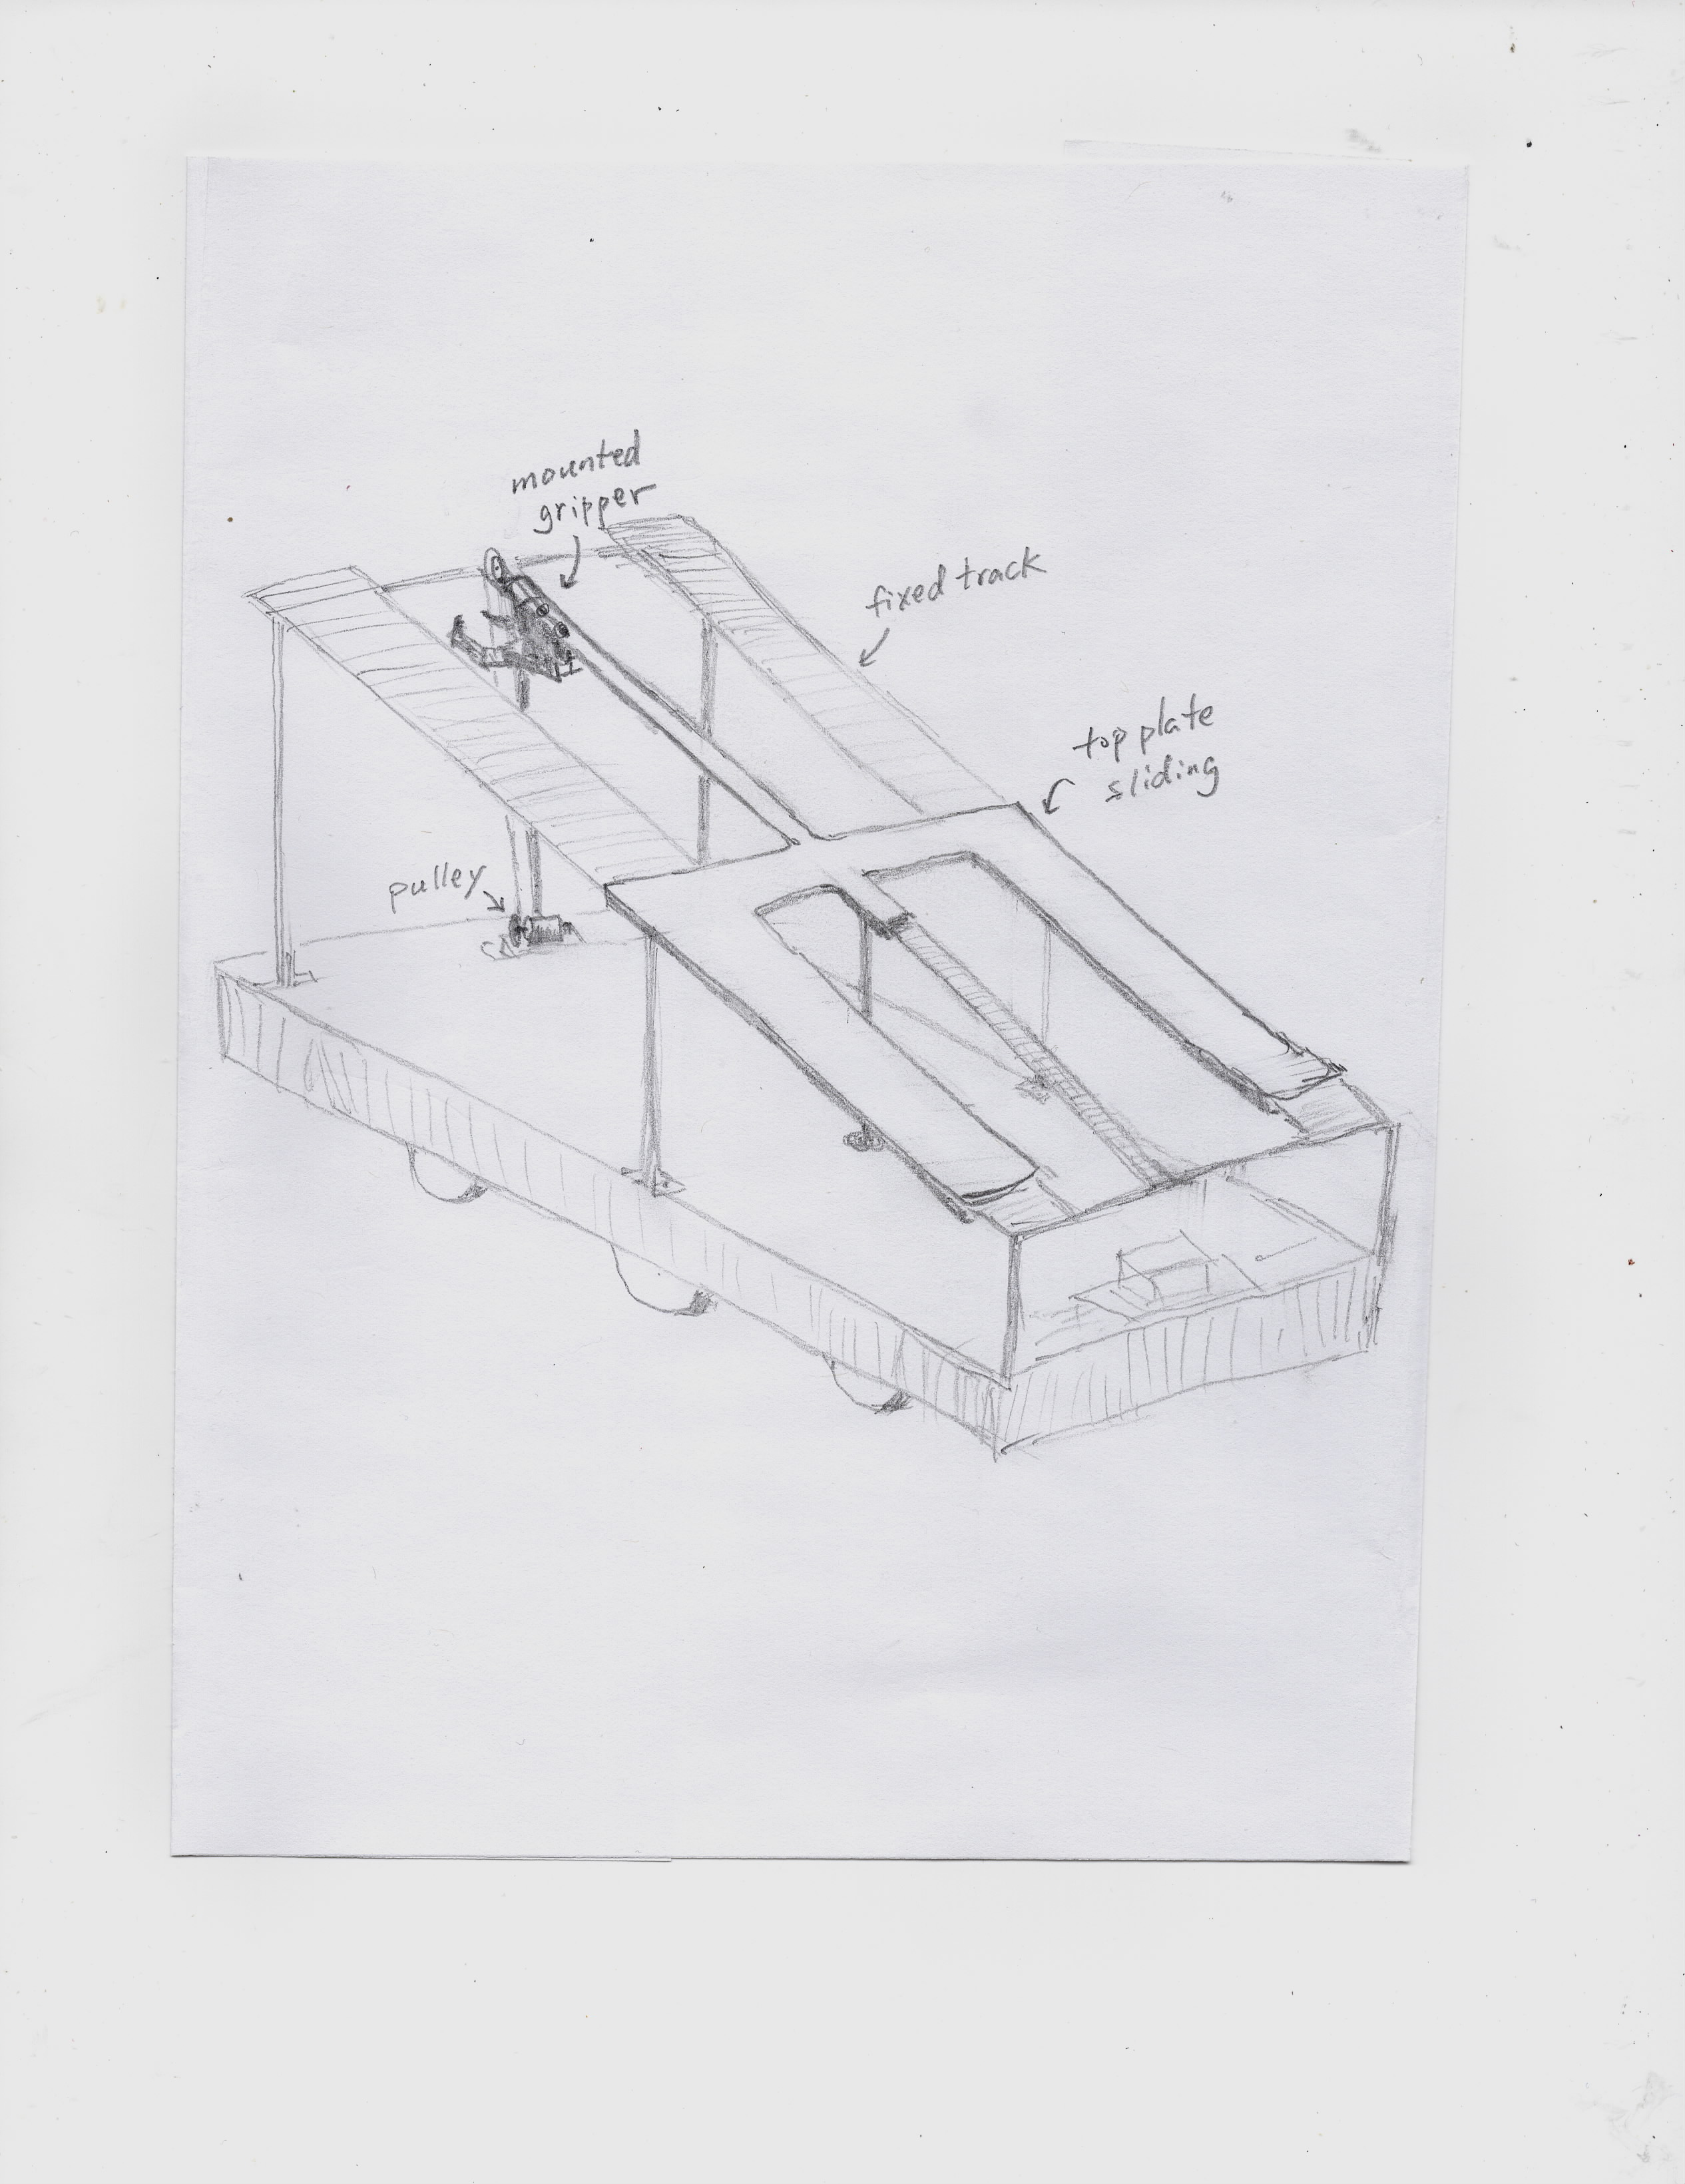 mounted
gripper
fixed track
top plate
sliding
pulley